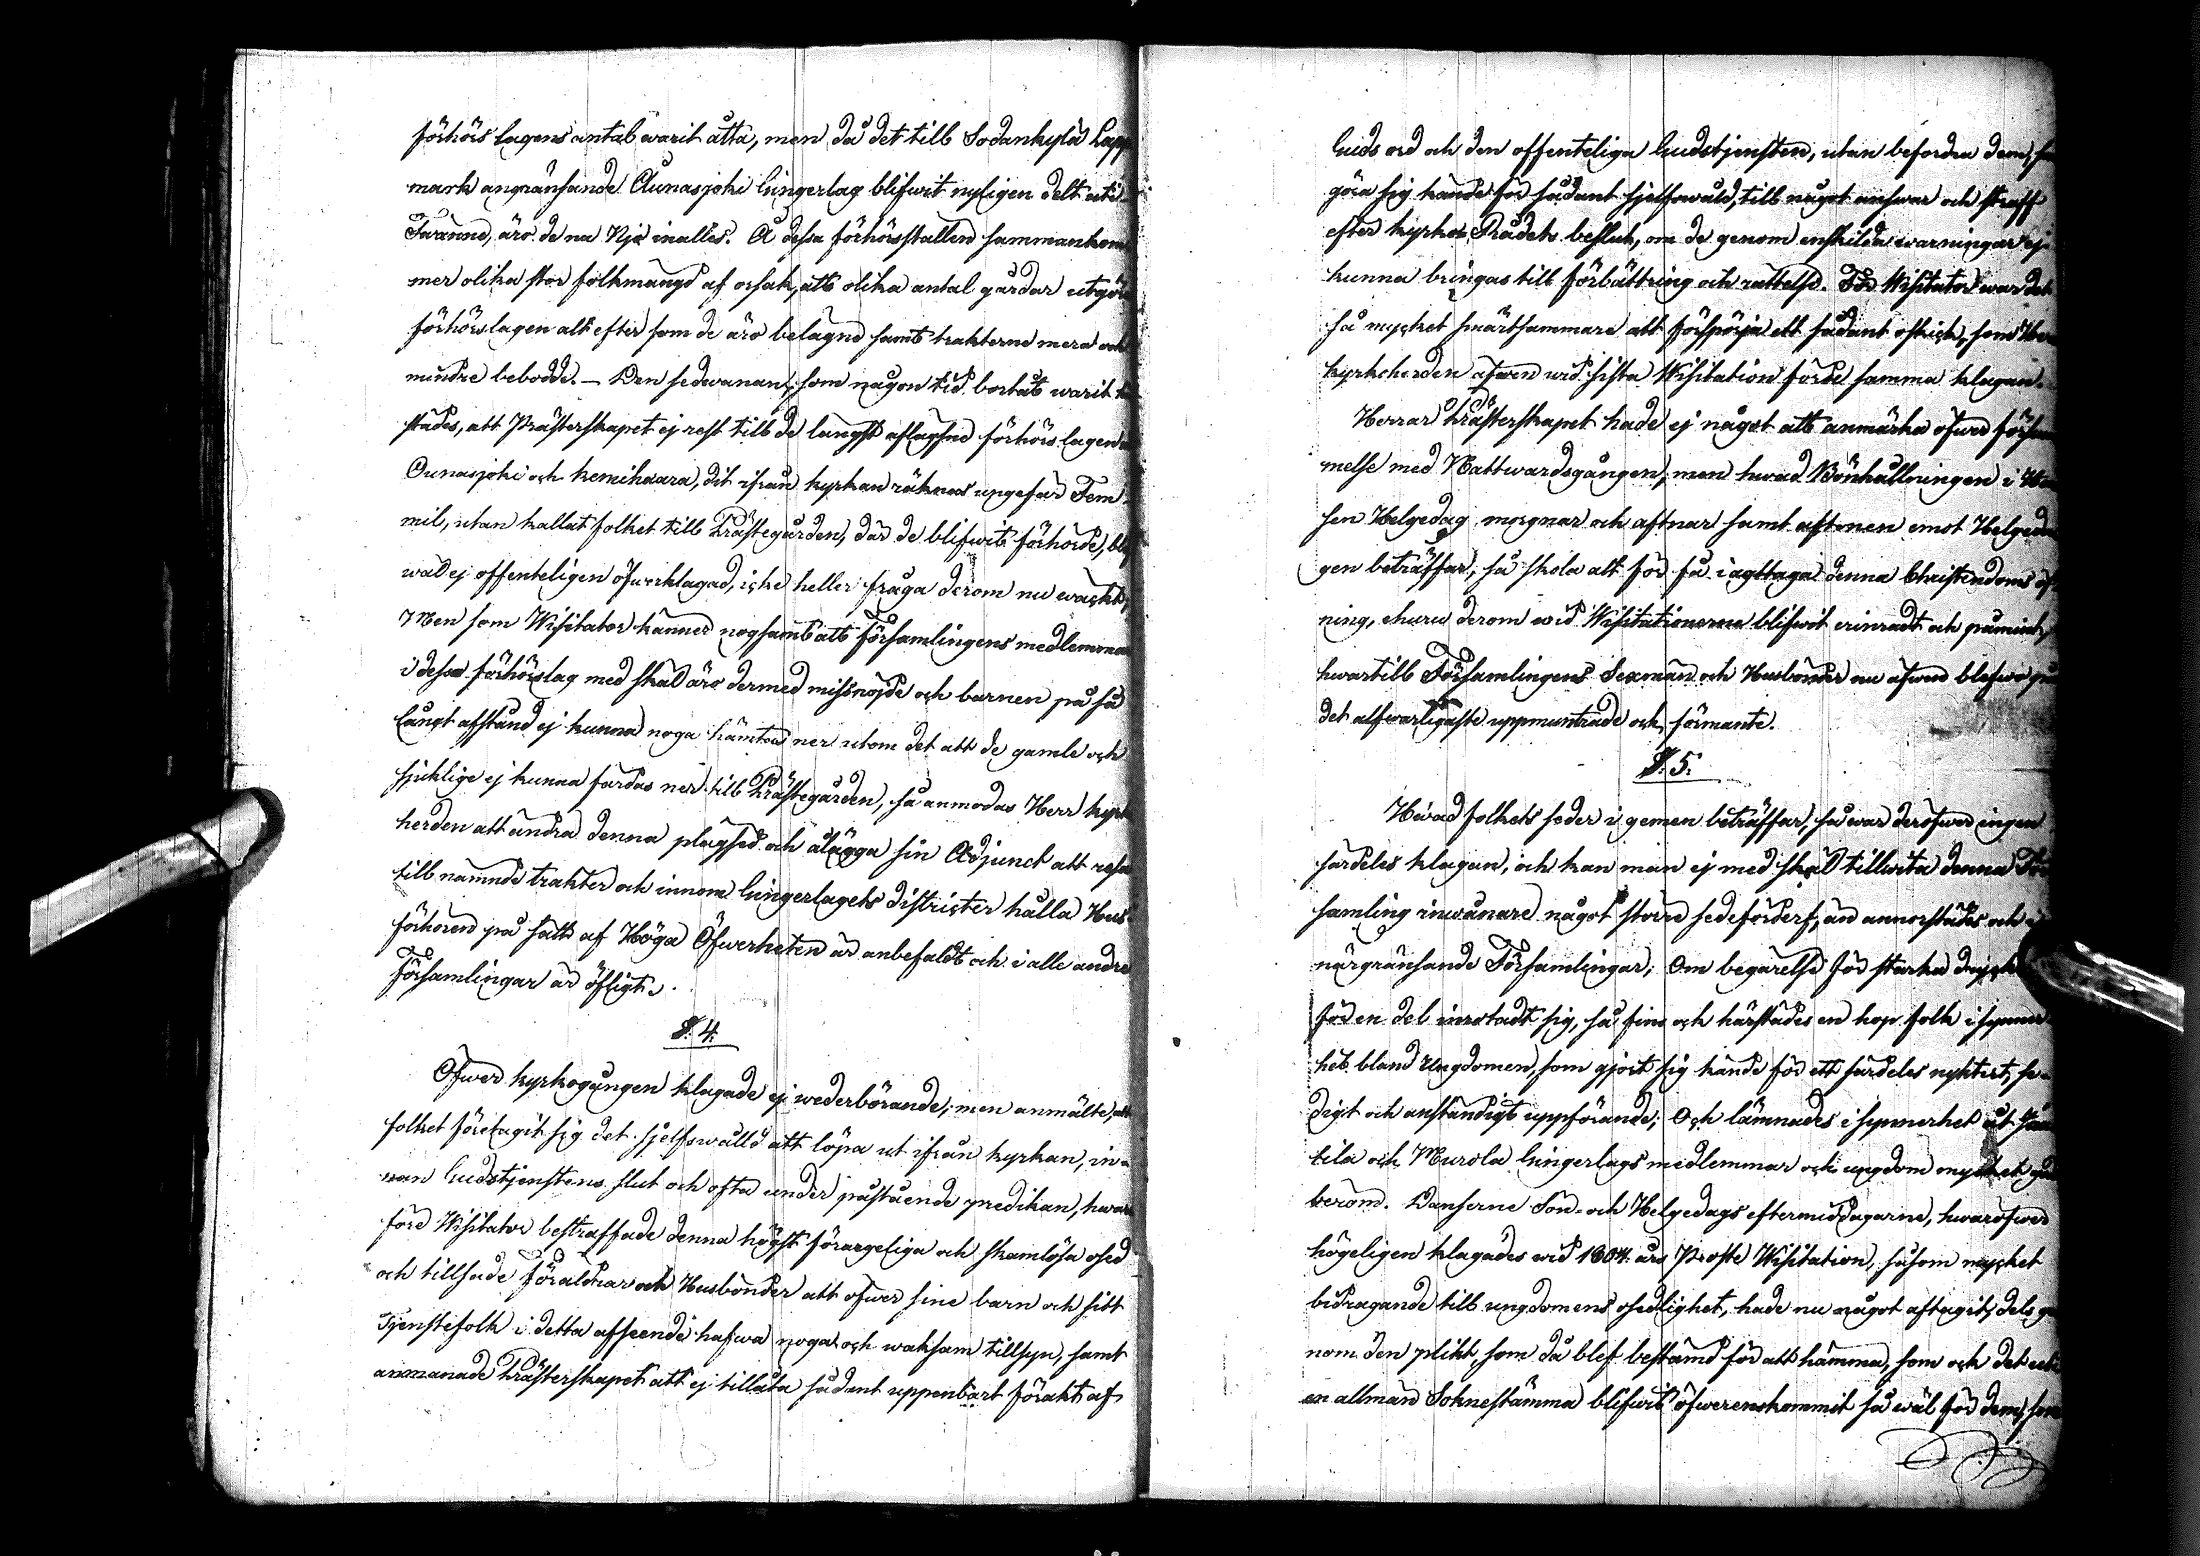 förhörs lagens antal warit åtta, men då det till Sodankylä Lapp
mark angränsande Ounasjoki Gingerlag blifwit nyligen delt uti
Twänne, äro de nu Njo inalles. Å dessa förhörsställen sammankom
mer olika stor folkmängd af orsak, att olika antal gårdar utgöra
förhörslagen alt efter som de äro belägne samt trakterne mera och
mindre bebodde. — Den sedwanan, som någon tid bortåt warit
städes, att Prästerskapet ej rest till de längst aflägsne förhörs lagen
Ounasjoki och Kemihaara, dit ifrån kyrkan räknas ungefär Fem
mil, utan kallat folket till Prästegården, där de blifwit förhörde,
wäl ej offenteligen öfwerklagad, icke heller fråga derom nu wäckt,
Men som Wisitator känner nogsamt att Församlingens medlemmar
i dessa förhörslag med skäl äro dermed missnöjde och barnen på så
långt afstånd ej kunna noga hämtas ner utom det att de gamle och
sjuklige ej kunna färdas ner till Prästegården, så anmodas Herr Kyrk
herden att ändra denna plägsed och ålägga sin Adjunct att resa
till nämnde trakter och innom Gingerlagets districter hålla Hus
förhören på sätt af Höga Öfwerheten är anbefaldt och i alle andre
Församlingar är öfligt.
§. 4.
Öfwer kyrkogången klagade ej wederbörande; men anmälte, att
folket företagit sig det sjelfswålld att löpa ut ifrån kyrkan, in-
nan Gudstjenstens slut och ofta under påstående predikan, hwar
före Wisitator bestraffade denna högst förargeliga och skamlösa osed
och tillsade Föräldrar och Husbönder att öfwer sine barn och sitt
Tjenstefolk i detta afseende hafwa noga och waksam tillsyn, samt
anmanade Prästerskapet att ej tillåta sådant uppenbart förakt af
Guds ord och den offenteliga Gudstjensten, utan befordra dem,
göra sig kände för sådant sjelfswåld, till något answar och straff
efter kyrko Rådets beslut, om de genom enskilda warningar ej
kunna bringas till förbättring och rättelse. För Wisitator war det
så mycket smärtsammare att försporja ett sådant oskick, som Herr
kyrkoherden äfwen wid sista Wisitation förde samma klagan.
Herrar Prästerskapet hade ej något att anmärka öfwer försum
melse med Nattwardsgången, men hwad Bönhållningen i
sen Helgedag morgnar och aftnar samt aftonen emot Helgeda
gen beträffar, så skola alt för få iagttaga denna Christendoms öf
ning, ehuru derom wid Wisitationerna blifwit erinradt och påmint,
hwartill Församlingens Sexmän och Husbönder nu äfwen blefwo på
det alfwarligaste uppmuntrade och förmante.
§. 5.
Hwad folkets seder i gemen beträffar, så war deröfwer ingen
särdeles klagan, och kan man ej med skäl tillwita denna För
samling inwånare något större sedeförderf, än annorstädes och i
närgränsande Församlingar; Om begärelse för starka drycker
för en del inrotadt sig, så fins och härstädes en hop folk i synner-
het bland Ungdomen, som gjort sig kände för ett särdeles nyktert, se-
digt och anständigt uppförande; Och lämnades i synnerhet åt
tila och Murola Gingerlags medlemmar och ungdom mycket godt
beröm. Danserne Sön- och Helgedags eftermiddagarne, hwaröfwer
högeligen klagades wid 1804 års Proste Wisitation, såsom mycket
bidragande till ungdomens osedlighet, hade nu något aftagit, dels ge
nom den plikt, som då blef bestämd för att hämma, som och det uti
en allmän Sokne stämma blifwit öfwerenskommit så wäl för dem, som